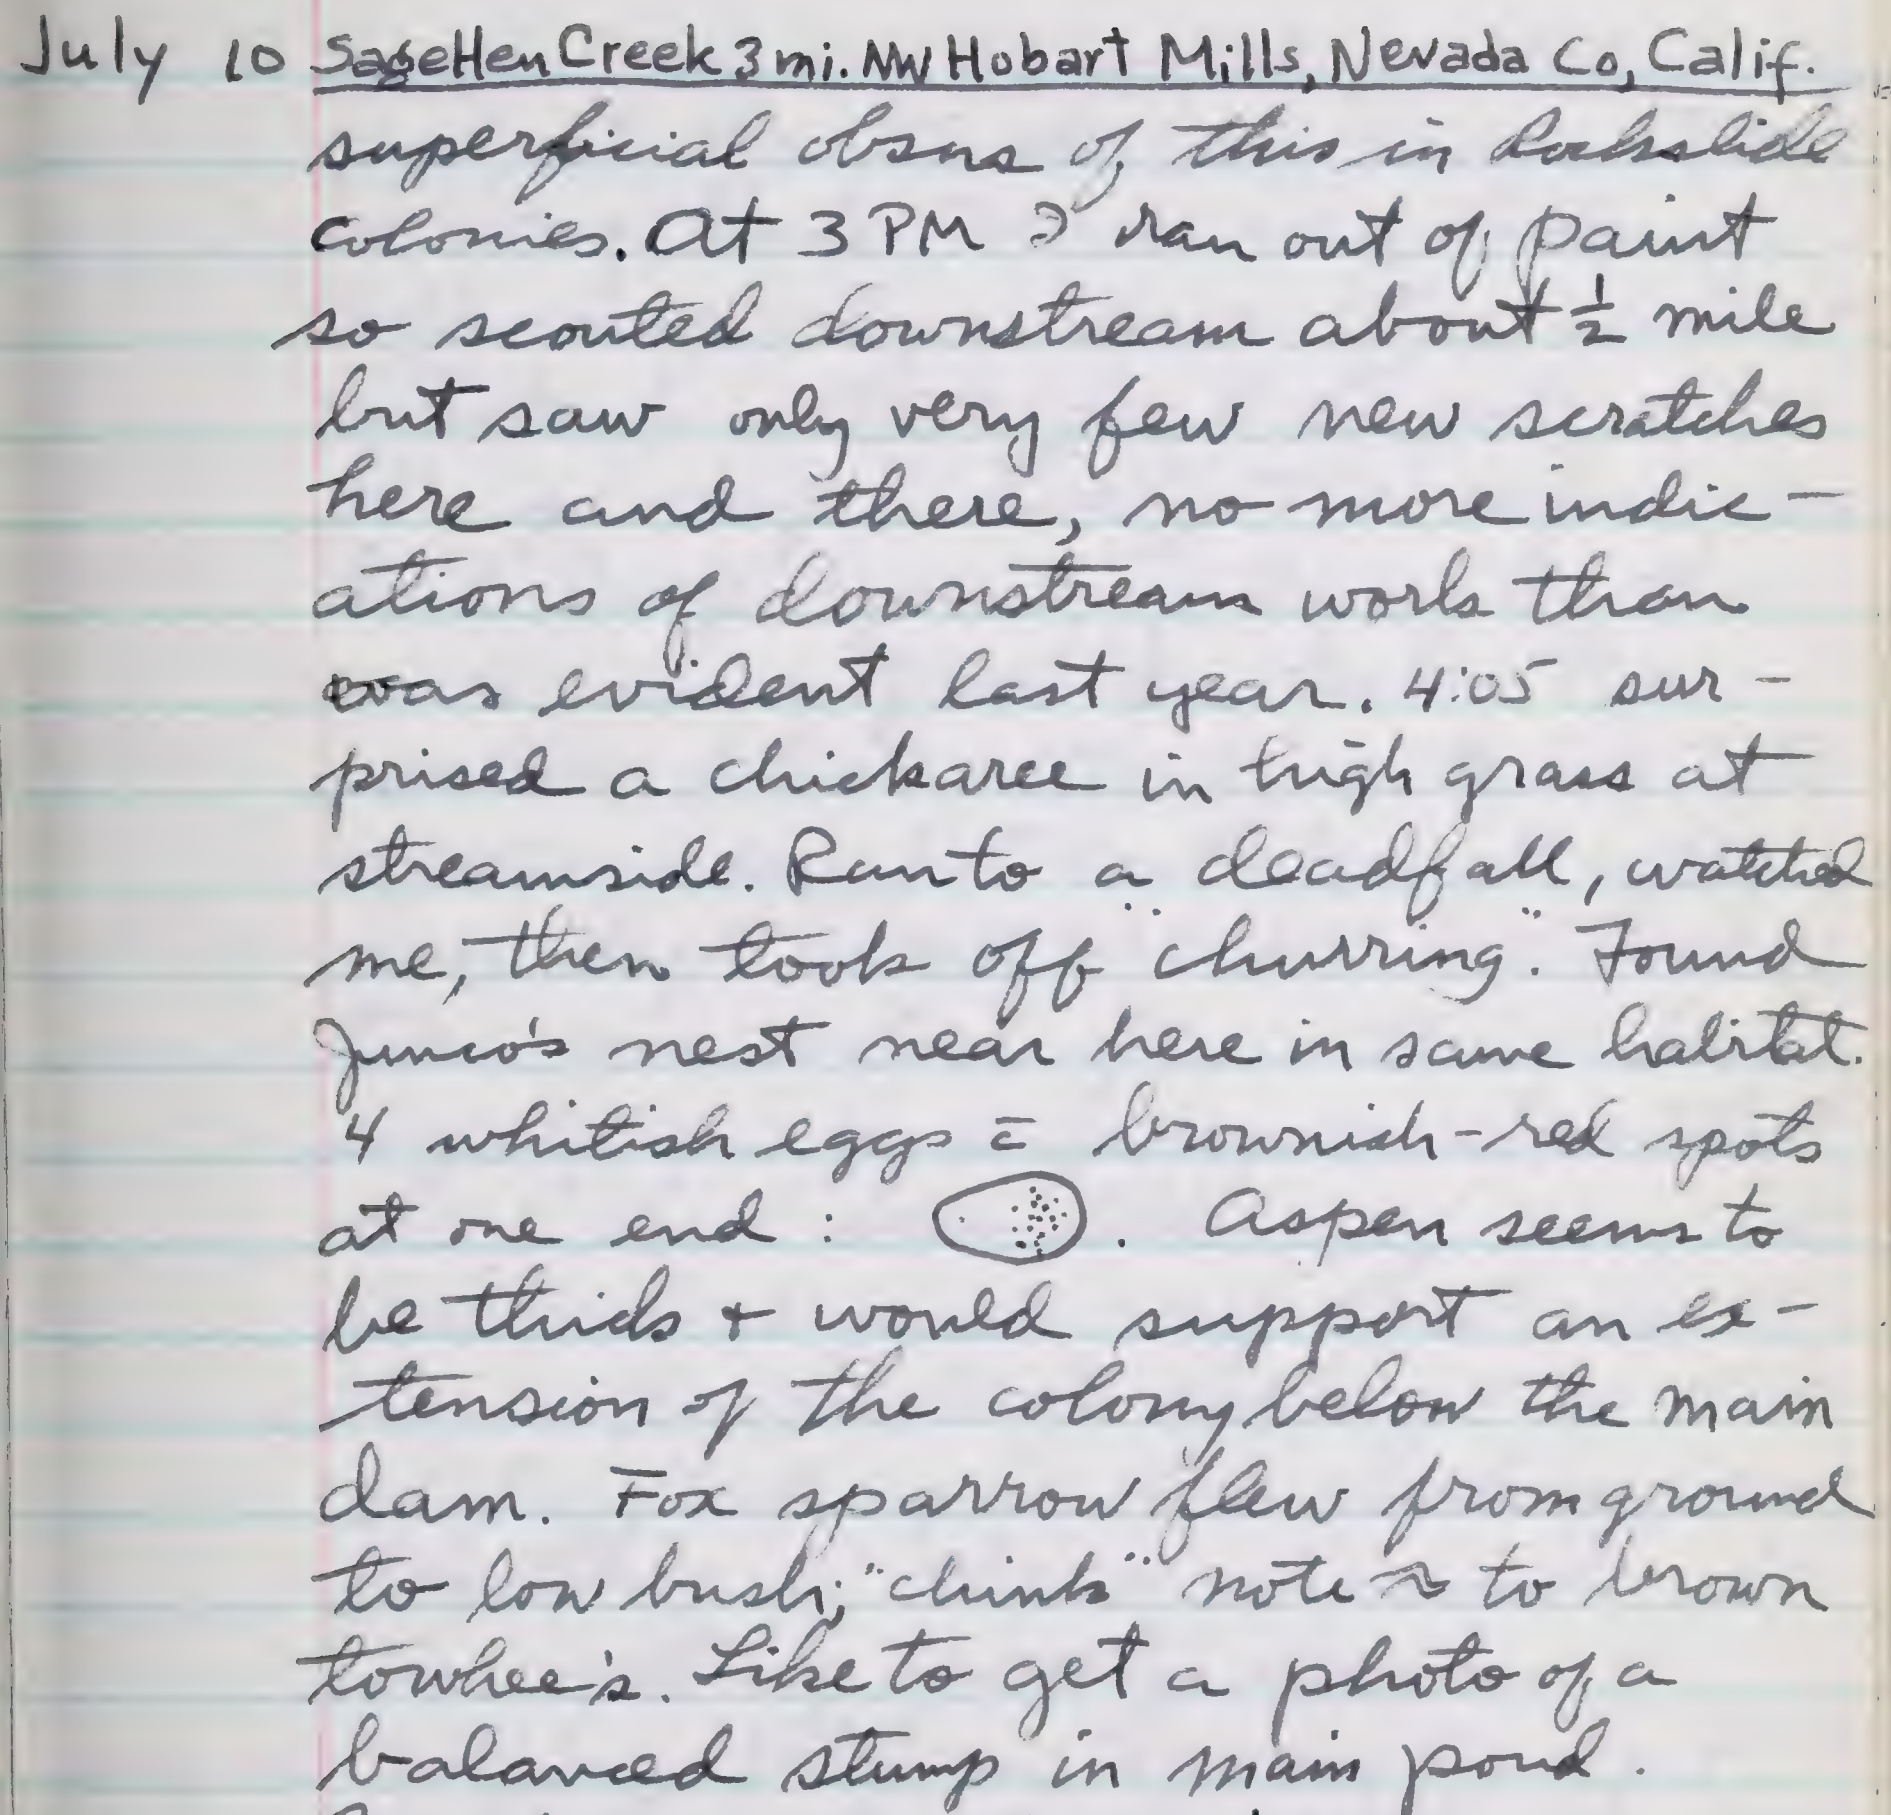 July 10 SageHen Creek 3 mi. NW Hobart Mills, Nevada Co, Calif.
superficial obsns of this in Rockslide
colonies. At 3 PM I ran out of paint
so scouted downstream about ½ mile
but saw only very few new scratches
here and there, no more indic-
ations of downstream work than
was evident last year. 4:05 sur-
prised a chickaree in high grass at
streamside. Ran to a deadfall, watched
me, then took off "churring". Found
Junco's nest near here in same habitat.
4 whitish eggs c̄ brownish-red spots
at one end : . Aspen seems to
be thick + would support an ex-
tension of the colony below the main
dam. Fox sparrow flew from ground
to low bush; "chink" note ≈ to brown
towhee's. Like to get a photo of a
balanced stump in main pond.